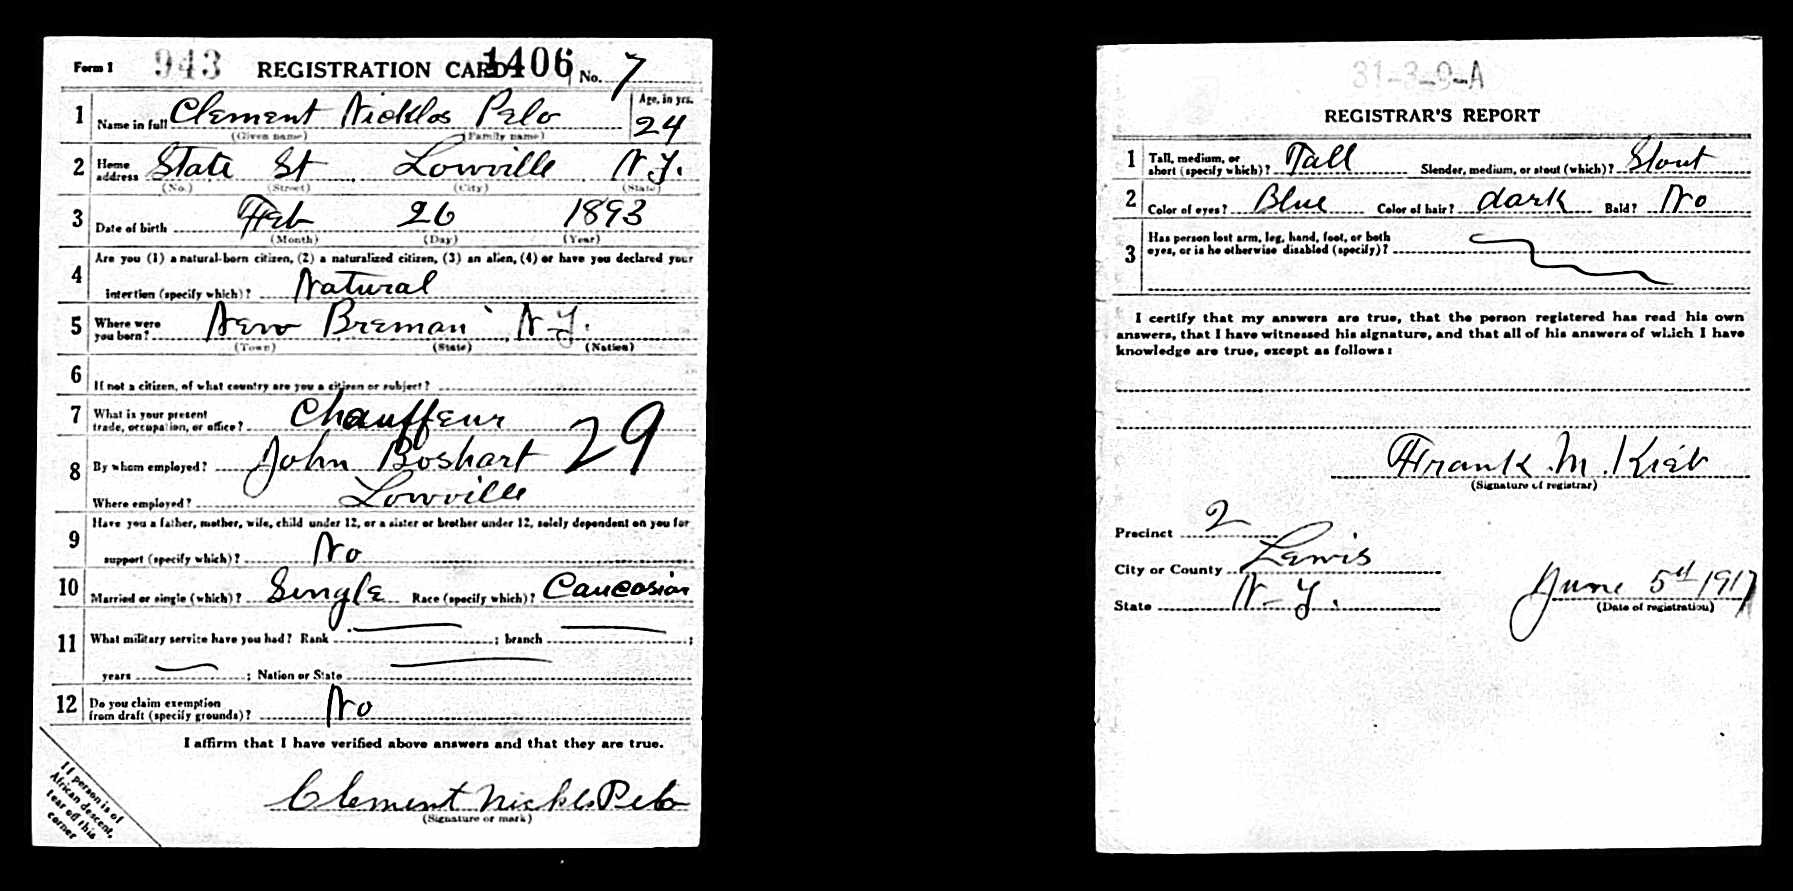 Form 1 943 REGISTRATION CARD 1406 No. 7
1 Name in full Clement Nicklos Pelo Age, in yrs. 24
(Given name) (Family name)
2 Home address State St Lowville N.Y.
(No.) (Street) (City) (State)
3 Date of birth Feb 26 1893
(Month) (Day) (Year)
4 Are you (1) a natural-born citizen, (2) a naturalized citizen, (3) an alien, (4) or have you declared your
intention (specify which)? Natural
5 Where were you born? New Breman N.Y.
(Town) (State) (Nation)
6 If not a citizen, of what country are you a citizen or subject?
7 What is your present trade, occupation, or office? Chauffeur
29
8 By whom employed? John Boshart
Where employed? Lowville
9 Have you a father, mother, wife, child under 12, or a sister or brother under 12, solely dependent on you for
support (specify which)? No
10 Married or single (which)? Single Race (specify which)? Caucasian
11 What military service have you had? Rank ; branch ;
years ; Nation or State
12 Do you claim exemption from draft (specify grounds)? No
I affirm that I have verified above answers and that they are true.
Clement Nickls Pelo
(Signature or mark)
If person is of
African descent,
tear off this
corner
31-3-9-A
REGISTRAR'S REPORT
1 Tall, medium, or short (specify which)? Tall Slender, medium, or stout (which)? Stout
2 Color of eyes? Blue Color of hair? dark Bald? No
3 Has person lost arm, leg, hand, foot, or both
eyes, or is he otherwise disabled (specify)?
I certify that my answers are true, that the person registered has read his own
answers, that I have witnessed his signature, and that all of his answers of which I have
knowledge are true, except as follows:
Frank M. Kieb
(Signature of registrar)
Precinct 2
City or County Lewis
State N-Y.
June 5th 1917
(Date of registration)